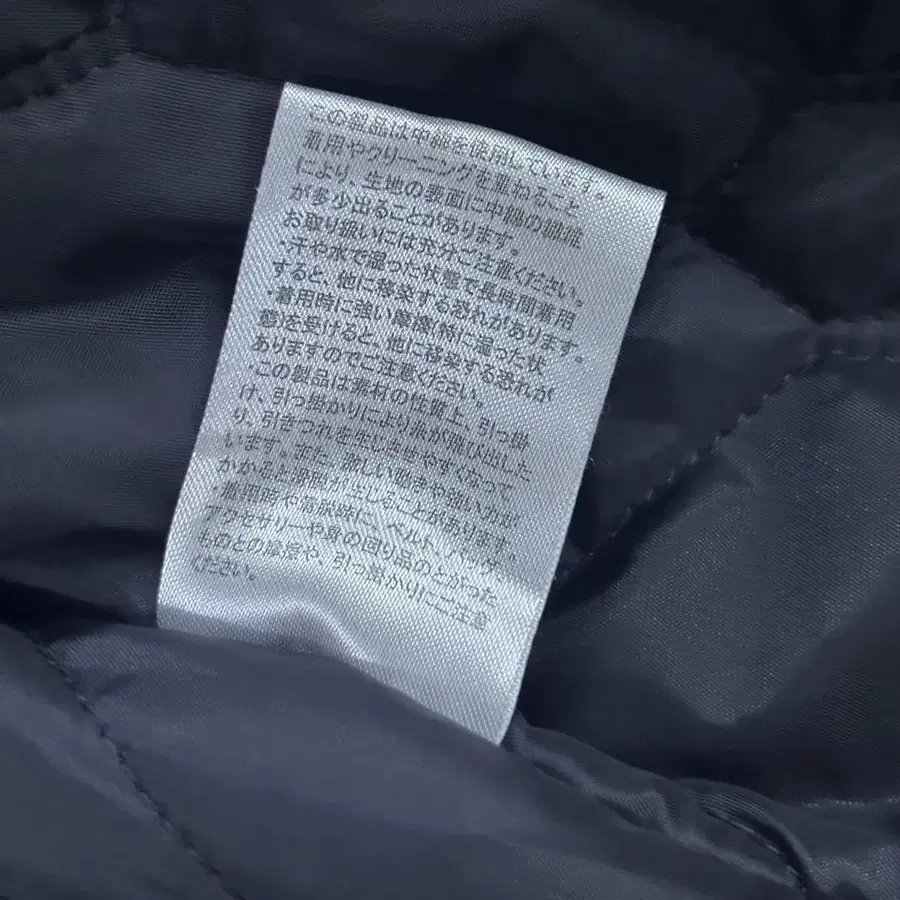 この製品は中綿を使用しています。
着用やクリーニングを重ねること
により、生地の表面に中綿の繊維
が多少出ることがあります。
お取り扱いには充分ご注意ください。
・汗や水で湿った状態で長時間着用
すると、他に移染する恐れがあります。
・着用時に強い摩擦(特に湿った状
態)を受けると、他に移染する恐れが
ありますのでご注意ください。
・この製品は素材の性質上、引っ掛
け、引っ掛かりにより糸が飛び出した
り、引きつれを生じ
います。また、激しい動きや強い力が
かかると
が生じることがあります。
・着用時や
に、ベルト、バッグ、
アクセサリーや身の回り品のとがった
ものとの摩擦や、引っ掛かりにご注意
ください。